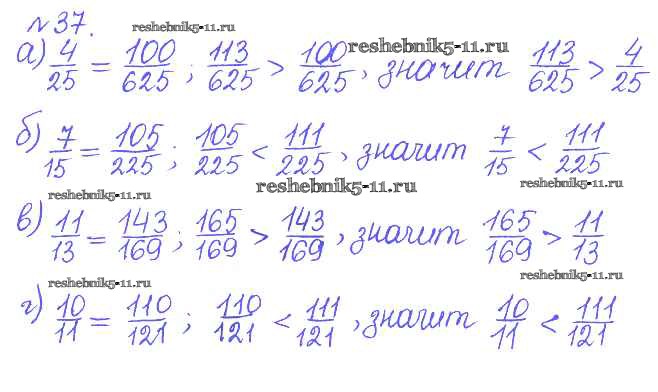 №37. reshebnik5-11.ru
а) 4/25 = 100/625; 113/625 > 100/625, значит 113/625 > 4/25 reshebnik5-11.ru
б) 7/15 = 105/225; 105/225 < 111/225, значит 7/15 < 111/225
reshebnik5-11.ru reshebnik5-11.ru reshebnik5-11.ru
в) 11/13 = 143/169; 165/169 > 143/169, значит 165/169 > 11/13
reshebnik5-11.ru reshebnik5-11.ru
г) 10/11 = 110/121; 110/121 < 111/121, значит 10/11 < 111/121